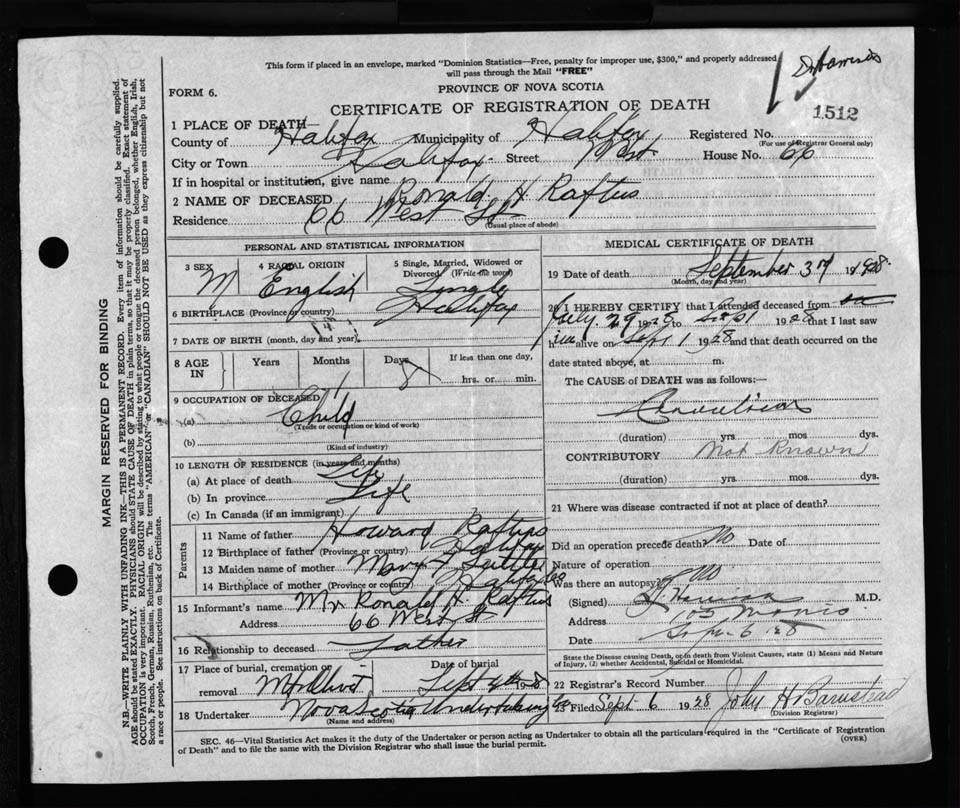 This form if placed in an envelope, marked "Dominion Statistics—Free, penalty for improper use, $300," and properly addressed
will pass through the Mail "FREE"
Dr Harris
FORM 6.
PROVINCE OF NOVA SCOTIA
CERTIFICATE OF REGISTRATION OF DEATH
1512
1 PLACE OF DEATH
County of Halifax Municipality of Halifax Registered No.
(For use of Registrar General only)
City or Town Halifax Street West House No. 66
If in hospital or institution, give name
2 NAME OF DECEASED Ronald H. Raftus
Residence 66 West St
(Usual place of abode)
PERSONAL AND STATISTICAL INFORMATION
3 SEX M
4 RACIAL ORIGIN English
5 Single, Married, Widowed or Divorced (Write the word) Single
6 BIRTHPLACE (Province or country) Halifax
7 DATE OF BIRTH (month, day and year)
8 AGE IN Years Months Days 8 If less than one day, hrs. or min.
9 OCCUPATION OF DECEASED
(a) Child
(Trade or occupation or kind of work)
(b)
(Kind of industry)
10 LENGTH OF RESIDENCE (in years and months)
(a) At place of death Life
(b) In province Life
(c) In Canada (if an immigrant)
Parents
11 Name of father Howard Raftus
12 Birthplace of father (Province or country) Halifax
13 Maiden name of mother Mary
14 Birthplace of mother (Province or country) Halifax
15 Informant's name Mr Ronald H. Raftus
Address 66 West St
16 Relationship to deceased Father
17 Place of burial, cremation or removal Mt Olivet
Date of burial Sept 4th 1928
18 Undertaker Nova Scotia Undertaking Co
(Name and address)
MEDICAL CERTIFICATE OF DEATH
19 Date of death September 3rd 1928.
(Month, day and year)
20 I HEREBY CERTIFY that I attended deceased from
July 29 1928 to Sept 1 1928 that I last saw
h alive on Sept 1 1928 and that death occurred on the
date stated above, at m.
The CAUSE OF DEATH was as follows:—
Convulsions
(duration) yrs. mos. dys.
CONTRIBUTORY Not Known
(duration) yrs. mos. dys.
21 Where was disease contracted if not at place of death?
Did an operation precede death? No Date of
Nature of operation
Was there an autopsy? No
(Signed) M.D.
Address 105 Morris
Date Sept 6 1928
State the Disease causing Death, or in death from Violent Causes, state (1) Means and Nature
of Injury, (2) whether Accidental, Suicidal or Homicidal.
22 Registrar's Record Number
Filed Sept 6 1928 John H Barnstead
(Division Registrar)
SEC. 46—Vital Statistics Act makes it the duty of the Undertaker or person acting as Undertaker to obtain all the particulars required in the "Certificate of Registration
of Death" and to file the same with the Division Registrar who shall issue the burial permit.
(OVER)
MARGIN RESERVED FOR BINDING
N.B.—WRITE PLAINLY WITH UNFADING INK—THIS IS A PERMANENT RECORD. Every item of information should be carefully supplied.
AGE should be stated EXACTLY. PHYSICIANS should STATE CAUSE OF DEATH in plain terms, so that it may be properly classified. Exact statement of
OCCUPATION is very important. RACIAL ORIGIN will be described by stating to what people or tongue the deceased person belonged, whether English, Irish,
Scotch, French, German, Russian, Ruthenian, etc. The terms "AMERICAN" or "CANADIAN" SHOULD NOT BE USED as they express citizenship but not
a race or people. See instructions on back of Certificate.